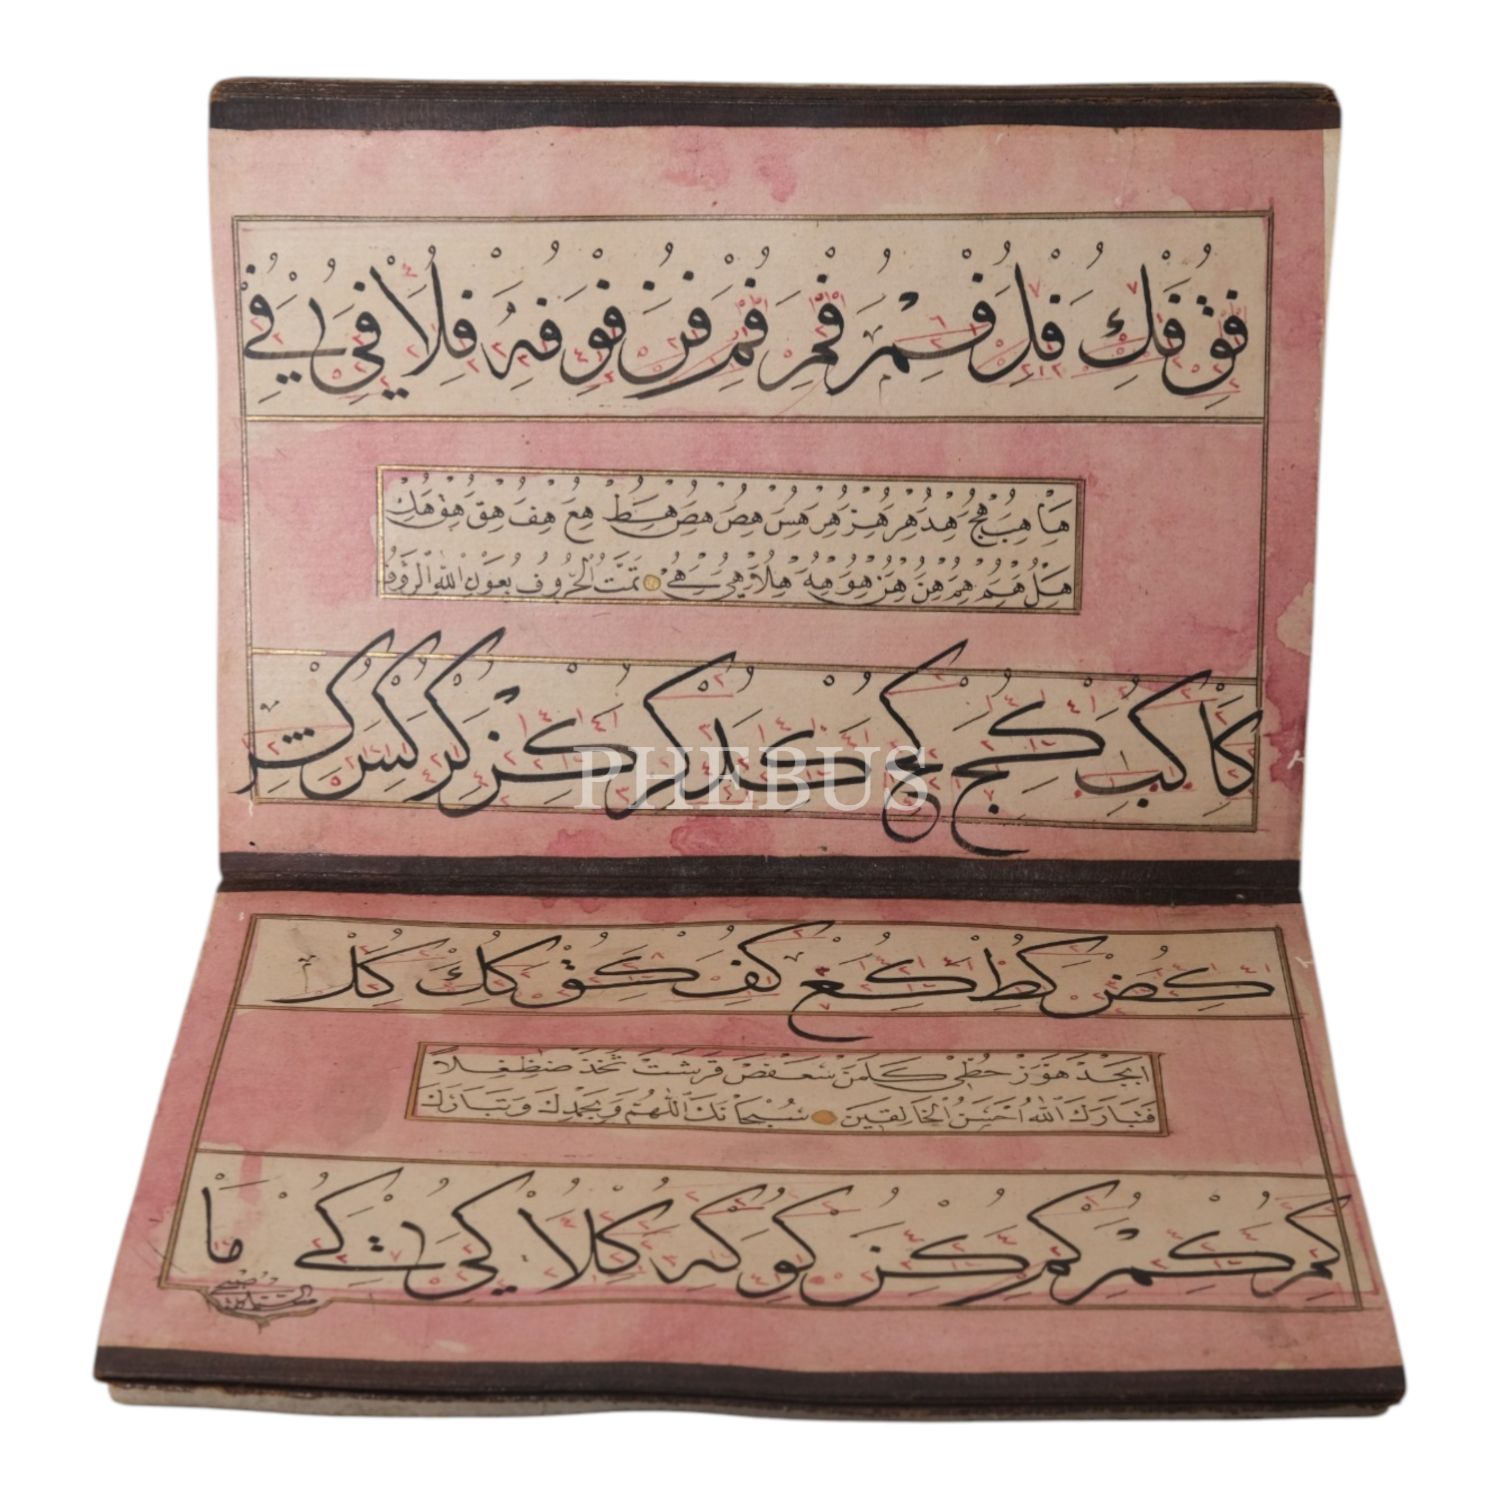 فق فك فل فم فمر فم فن فو فه فلا في في
ها هب هج هد هر هز هر هس هص هض هط هع هف هق هو هك
هل هم هم هن هن هو هه هلا هي هي تمت الحروف بعون الله الرؤف
كا كب كج كج كد كر كز كر كس كش
كض كط كع كف كق كك كل
ابجد هوز حطي كلمن سعفص قرشت ثخذ ضظغلا
فتبارك الله احسن الخالقين سبحانك اللهم وبحمدك وتبارك
كم كم كم كن كو كه كلا كي كي ما
PHEBUS